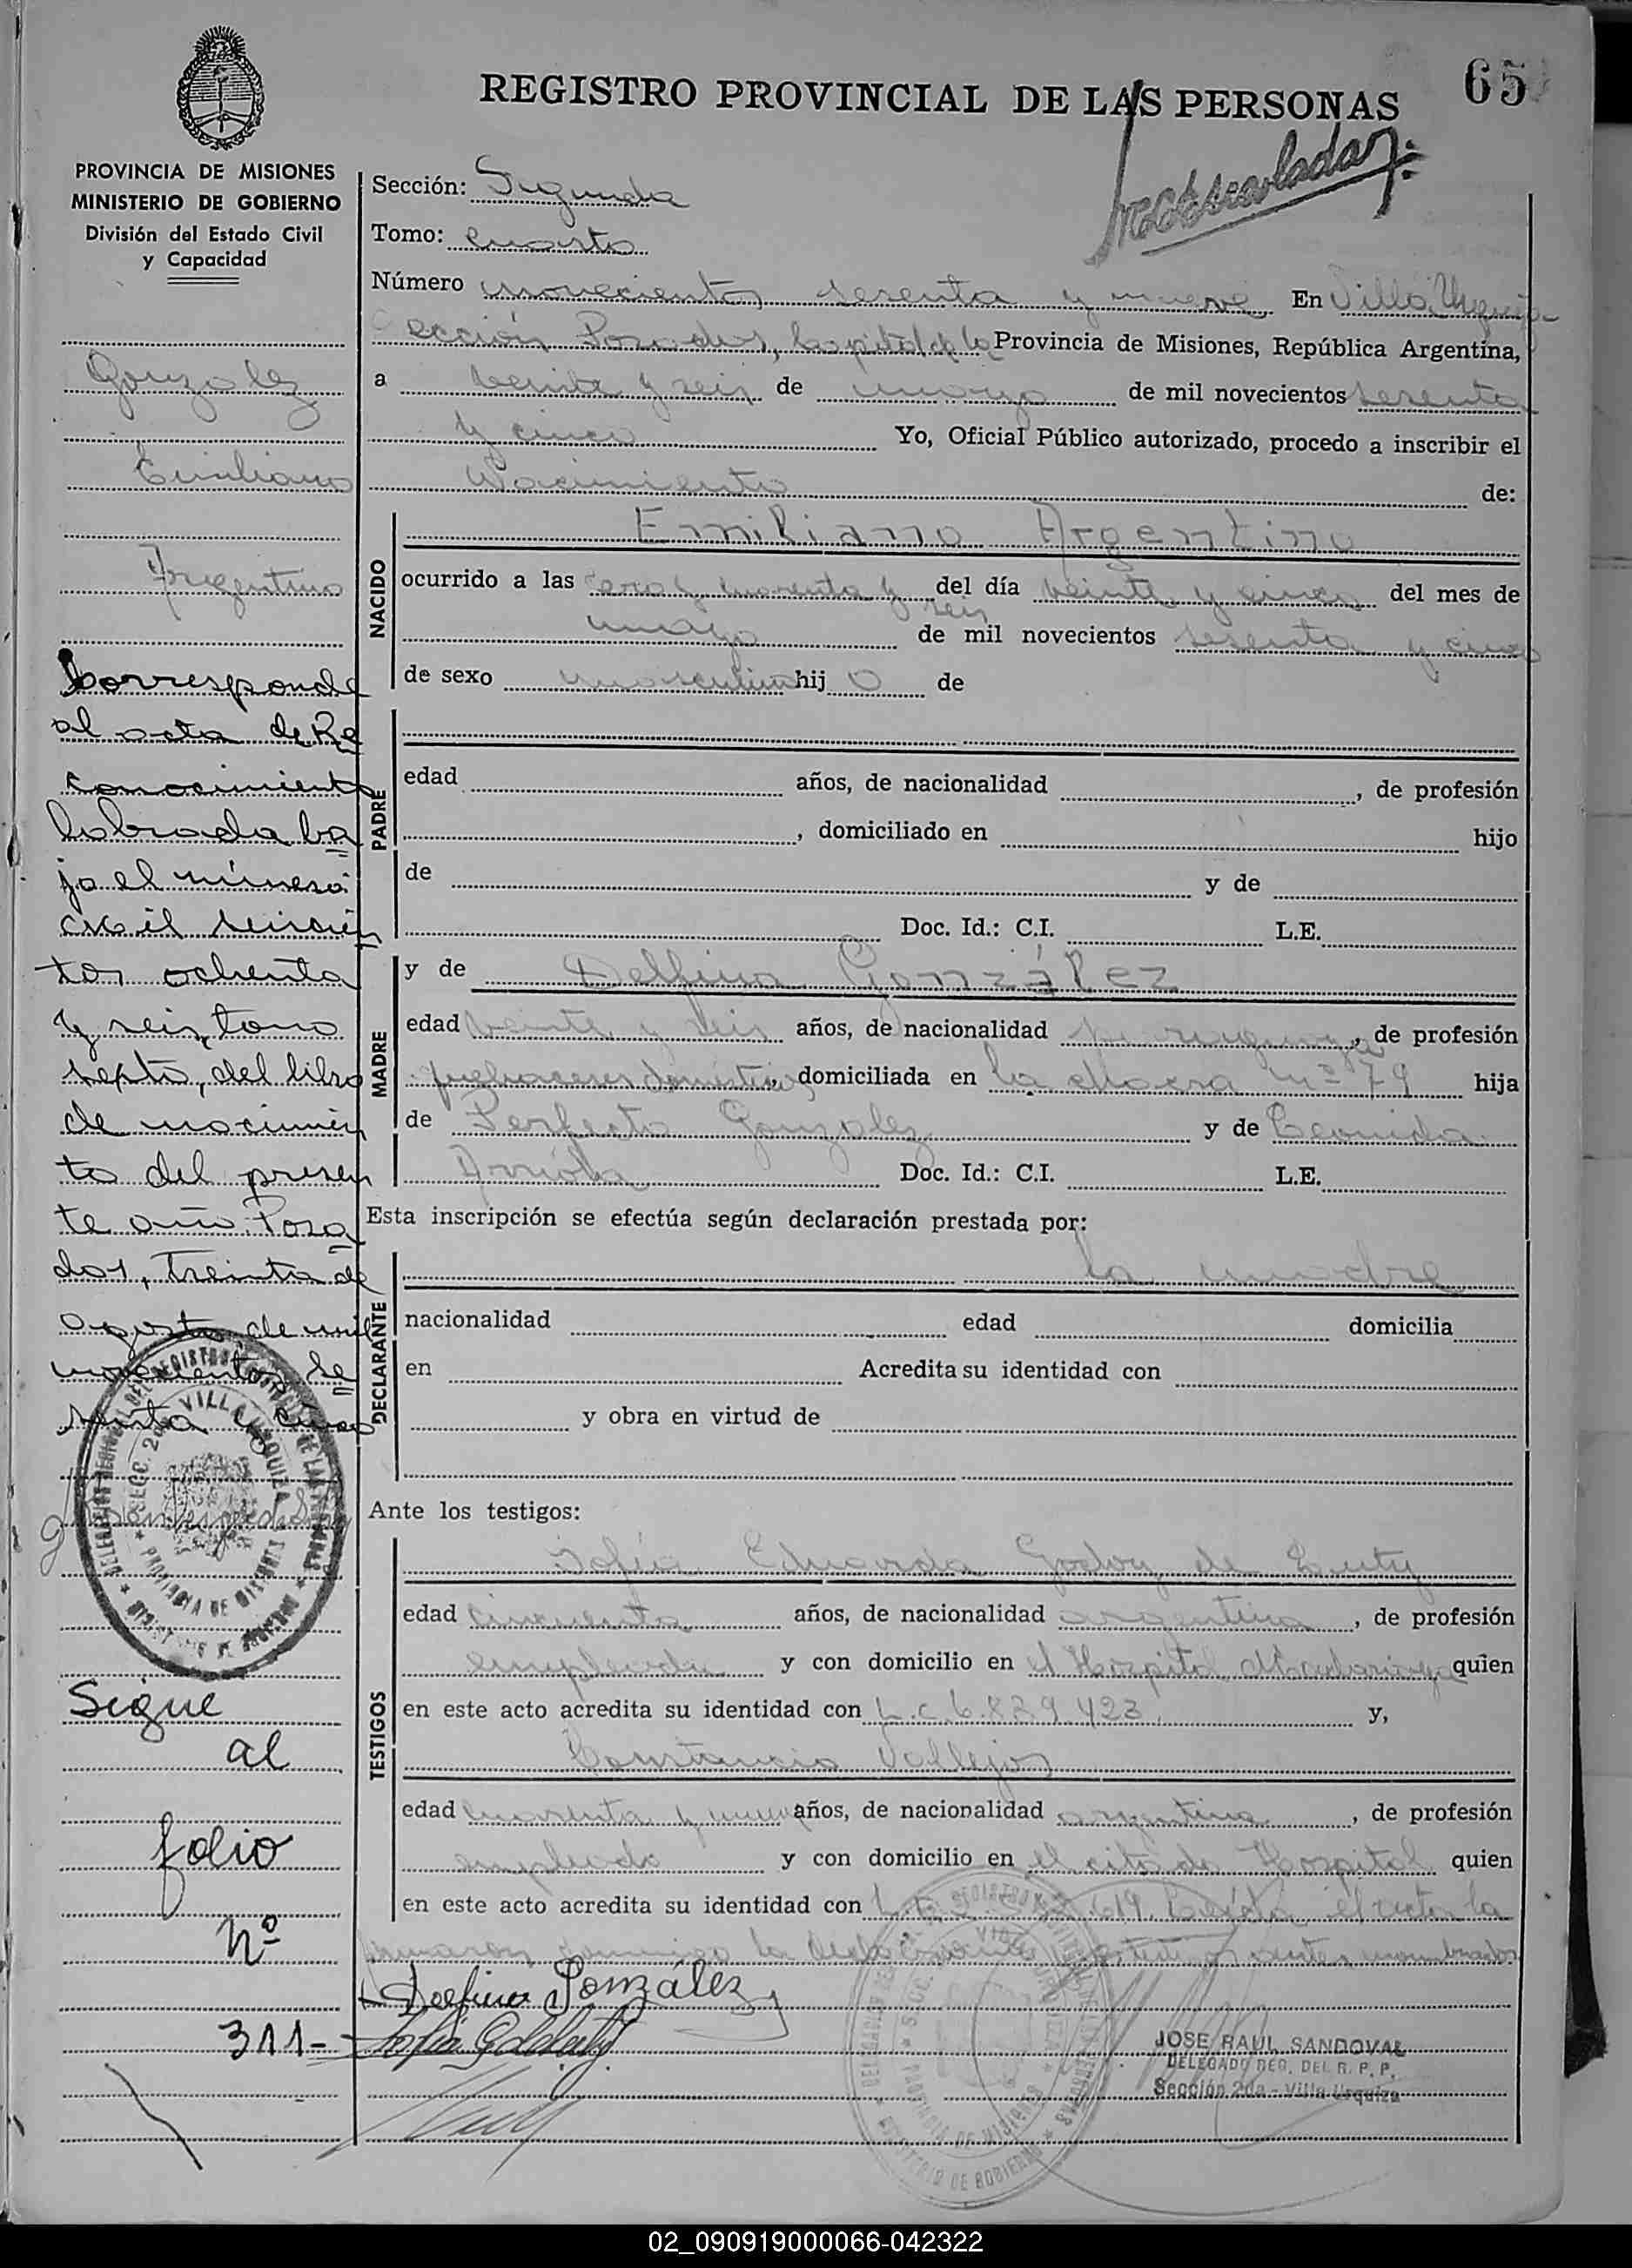 65
REGISTRO PROVINCIAL DE LAS PERSONAS
PROVINCIA DE MISIONES
MINISTERIO DE GOBIERNO
División del Estado Civil
y Capacidad
Sección: Segunda
Tomo: cuarto
Número novecientos sesenta y nueve En Villa Urquiza
Sección Posadas, Capital de la Provincia de Misiones, República Argentina,
a veinte y seis de mayo de mil novecientos sesenta
y cinco Yo, Oficial Público autorizado, procedo a inscribir el
Nacimiento de:
González
Emiliano
Argentino
NACIDO
Emiliano Argentino
ocurrido a las cero y cuarenta y seis del día veinte y cinco del mes de
mayo de mil novecientos sesenta y cinco
de sexo masculino hijo de
PADRE
edad años, de nacionalidad , de profesión
, domiciliado en hijo
de y de
Doc. Id.: C.I. L.E.
MADRE
y de Delfina González
edad veinte y seis años, de nacionalidad paraguaya, de profesión
quehaceres domésticos, domiciliada en La nº 79 hija
de Perfecto González y de Leonida
Arriola Doc. Id.: C.I. L.E.
Esta inscripción se efectúa según declaración prestada por:
DECLARANTE
la madre
nacionalidad edad domicilia
en Acredita su identidad con
y obra en virtud de
Ante los testigos:
TESTIGOS
Sofía Eduarda Godoy de
edad cincuenta años, de nacionalidad argentina, de profesión
empleada y con domicilio en el Hospital Madariaga quien
en este acto acredita su identidad con L.C. 6.829.423 y,
Constancio Vallejos
edad cuarenta y nueve años, de nacionalidad argentina, de profesión
empleado y con domicilio en el citado Hospital quien
en este acto acredita su identidad con 619. Leída el acta la
firmaron la declarante testigos nombrados
Delfina González
JOSE RAUL SANDOVAL
DELEGADO REG. DEL R. P. P.
Sección 2da - Villa Urquiza
Corresponde
al acta de Re
conocimiento
labrada ba
jo el número
mil seiscien
tos ochenta
y seis, tomo
septo, del libro
de nacimien
to del presen
te año. Posa
das, Treinta de
agosto de mil
novecientos se
senta y cinco
VILLA URQUIZA
SECC. 2da
PROVINCIA DE MISIONES
Sigue
al
folio
Nº
311-
02_090919000066-042322